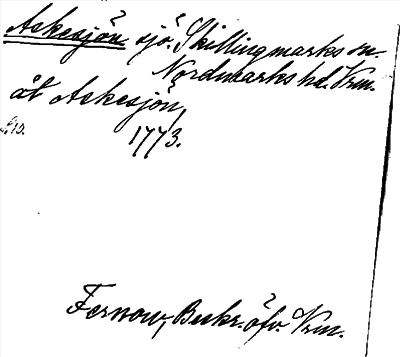 Askesjön sjö. Skillingmarks sn.
Nordmarks hd. Vrm.
åt Askesjön
1773.
Fernow, Beskr. öfv. Vrm.